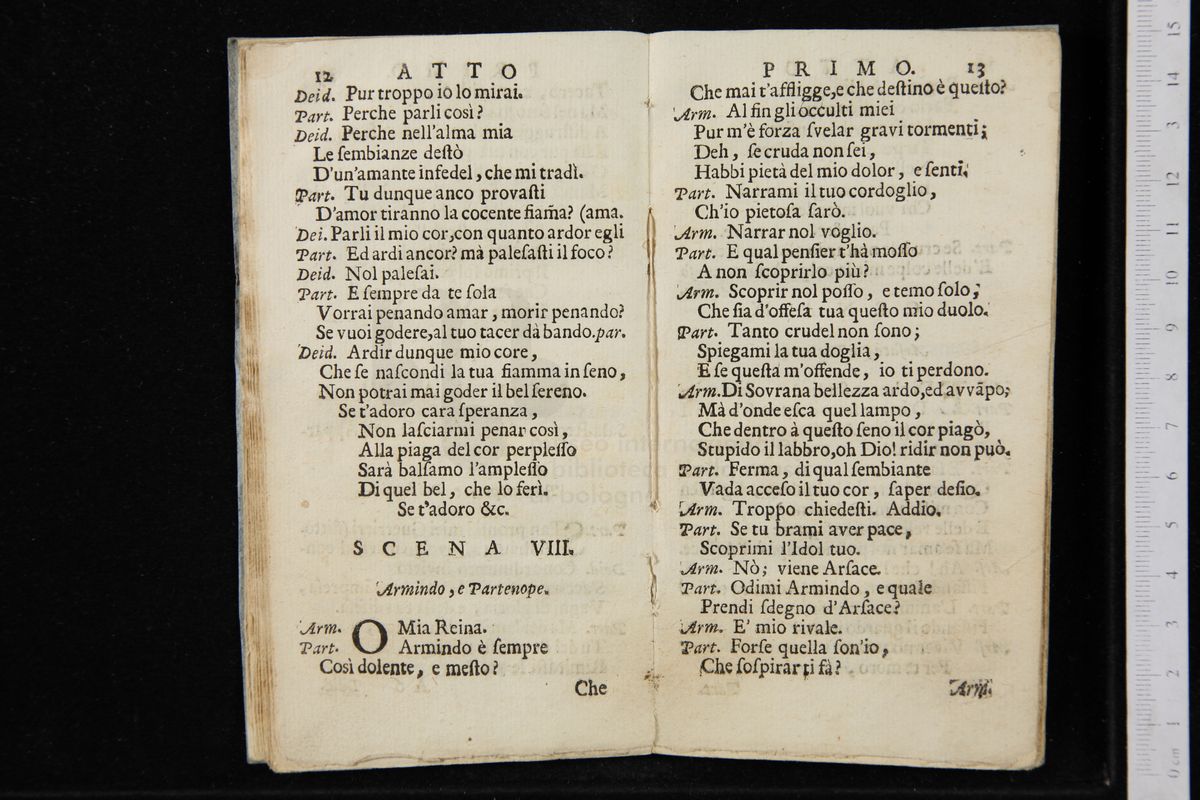 12 ATTO
Deid. Pur troppo io lo mirai.
Part. Perche parli così?
Deid. Perche nell'alma mia
Le ſembianze deſtò
D'un'amante infedel, che mi tradì.
Part. Tu dunque anco provaſti
D'amor tiranno la cocente fiam̃a? (ama.
Dei. Parli il mio cor, con quanto ardor egli
Part. Ed ardi ancor? mà paleſaſti il foco?
Deid. Nol paleſai.
Part. E ſempre da te ſola
Vorrai penando amar, morir penando?
Se vuoi godere, al tuo tacer dà bando. par.
Deid. Ardir dunque mio core,
Che ſe naſcondi la tua fiamma in ſeno,
Non potrai mai goder il bel ſereno.
Se t'adoro cara ſperanza,
Non laſciarmi penar così,
Alla piaga del cor perpleſſo
Sarà balſamo l'ampleſſo
Di quel bel, che lo ferì.
Se t'adoro &c.
SCENA VIII.
Armindo, e Partenope.
Arm. O Mia Reina.
Part. Armindo è ſempre
Così dolente, e meſto?
Che
PRIMO. 13
Che mai t'affligge, e che deſtino è queſto?
Arm. Al fin gli occulti miei
Pur m'è forza ſvelar gravi tormenti;
Deh, ſe cruda non ſei,
Habbi pietà del mio dolor, e ſenti.
Part. Narrami il tuo cordoglio,
Ch'io pietoſa ſarò.
Arm. Narrar nol voglio.
Part. E qual penſier t'hà moſſo
A non ſcoprirlo più?
Arm. Scoprir nol poſſo, e temo ſolo,
Che ſia d'offeſa tua queſto mio duolo.
Part. Tanto crudel non ſono;
Spiegami la tua doglia,
E ſe queſta m'offende, io ti perdono.
Arm. Di Sovrana bellezza ardo, ed avvãpo;
Mà d'onde eſca quel lampo,
Che dentro à queſto ſeno il cor piagò,
Stupido il labbro, oh Dio! ridir non può.
Part. Ferma, di qual ſembiante
Vada acceſo il tuo cor, ſaper deſio.
Arm. Troppo chiedeſti. Addio.
Part. Se tu brami aver pace,
Scoprimi l'Idol tuo.
Arm. Nò; viene Arſace.
Part. Odimi Armindo, e quale
Prendi ſdegno d'Arſace?
Arm. E' mio rivale.
Part. Forſe quella ſon'io,
Che ſoſpirar ti fà?
Arm.